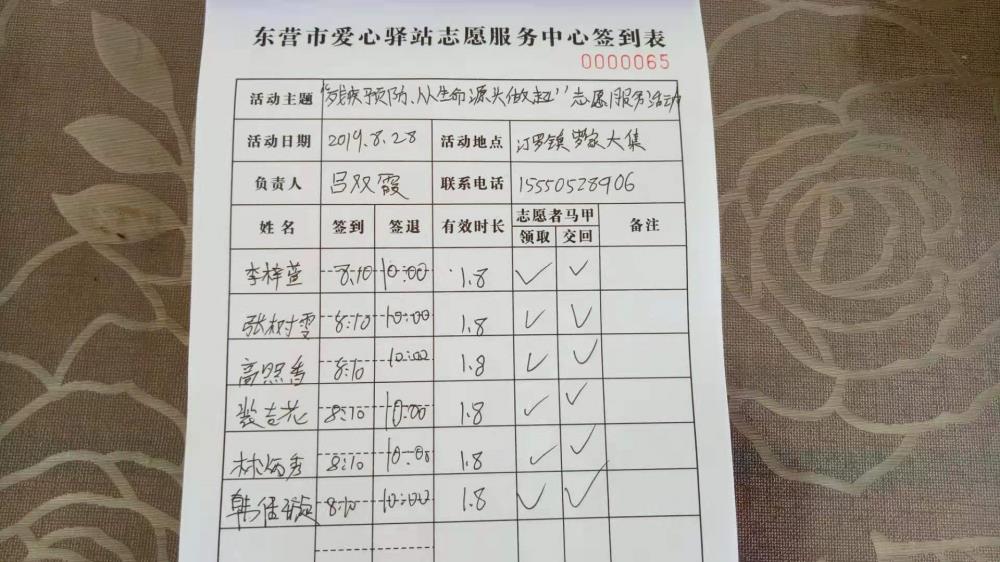 东营市爱心驿站志愿服务中心签到表
0000065
活动主题 "残疾预防、从生命源头做起"志愿服务活动
活动日期 2019.8.28 活动地点 汀罗镇罗家大集
负责人 吕双霞 联系电话 15550528906
姓名 签到 签退 有效时长 志愿者马甲 备注
领取 交回
李梓萱 8:10 10:00 1.8 ✓ ✓
张树雪 8:10 10:00 1.8 ✓ ✓
高照香 8:10 10:00 1.8 ✓ ✓
张吉花 8:10 10:00 1.8 ✓ ✓
林炳秀 8:10 10:00 1.8 ✓ ✓
韩佳璇 8:10 10:00 1.8 ✓ ✓